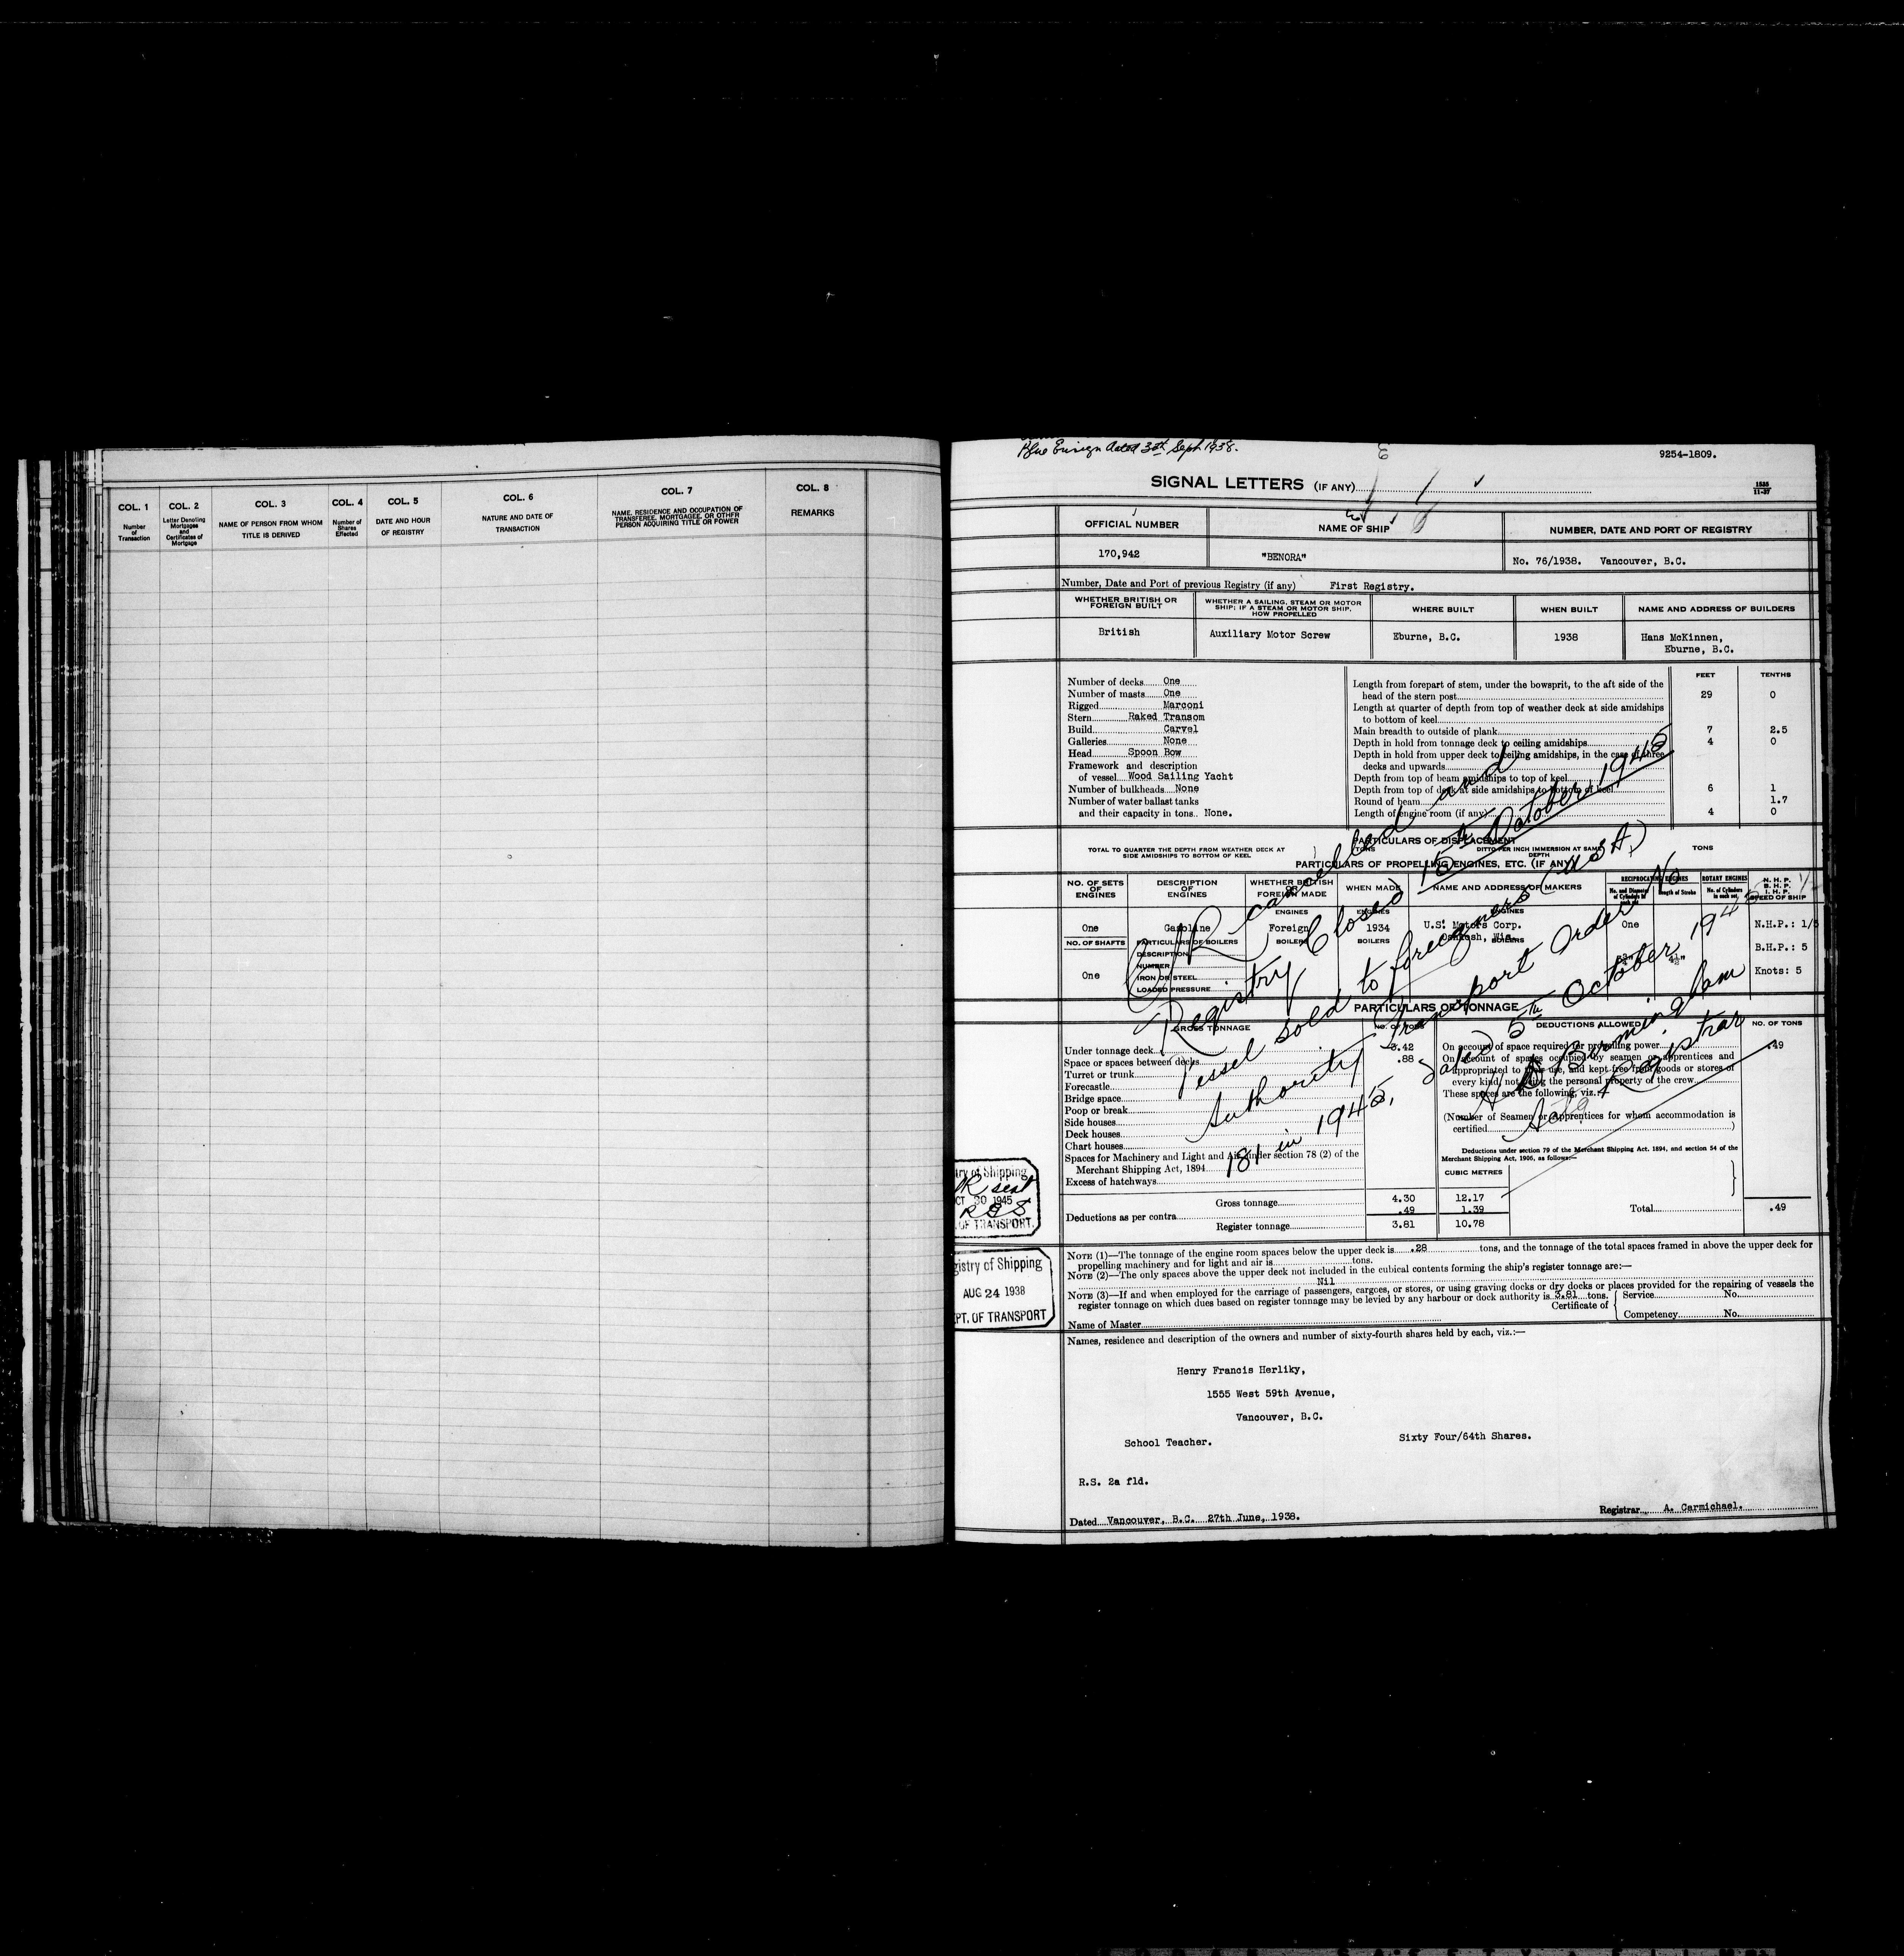 COL. 1 COL. 2 COL. 3 COL. 4 COL. 5 COL. 6 COL. 7 COL. 8
Number of Transaction
Letter Denoting Mortgages and Certificates of Mortgage
NAME OF PERSON FROM WHOM TITLE IS DERIVED
Number of Shares Effected
DATE AND HOUR OF REGISTRY
NATURE AND DATE OF TRANSACTION
NAME, RESIDENCE AND OCCUPATION OF TRANSFEREE, MORTGAGEE, OR OTHER PERSON ACQUIRING TITLE OR POWER
REMARKS
Blue Ensign dated 30th Sept 1938.
9254-1809.
SIGNAL LETTERS (IF ANY)
1535
11-37
OFFICIAL NUMBER NAME OF SHIP NUMBER, DATE AND PORT OF REGISTRY
170,942 "BENORA" No. 76/1938. Vancouver, B.C.
Number, Date and Port of previous Registry (if any) First Registry.
WHETHER BRITISH OR FOREIGN BUILT
WHETHER A SAILING, STEAM OR MOTOR SHIP; IF A STEAM OR MOTOR SHIP, HOW PROPELLED
WHERE BUILT WHEN BUILT NAME AND ADDRESS OF BUILDERS
British Auxiliary Motor Screw Eburne, B.C. 1938 Hans McKinnen,
Eburne, B.C.
FEET TENTHS
Number of decks One
Number of masts One
Rigged Marconi
Stern Raked Transom
Build Carvel
Galleries None
Head Spoon Bow
Framework and description
of vessel Wood Sailing Yacht
Number of bulkheads None
Number of water ballast tanks
and their capacity in tons.. None.
Length from forepart of stem, under the bowsprit, to the aft side of the
head of the stern post 29 0
Length at quarter of depth from top of weather deck at side amidships
to bottom of keel
Main breadth to outside of plank 7 2.5
Depth in hold from tonnage deck to ceiling amidships 4 0
Depth in hold from upper deck to ceiling amidships, in the case of three
decks and upwards
Depth from top of beam amidships to top of keel
Depth from top of deck at side amidships to bottom of keel 6 1
Round of beam 1.7
Length of engine room (if any) 4 0
PARTICULARS OF DISPLACEMENT
TOTAL TO QUARTER THE DEPTH FROM WEATHER DECK AT SIDE AMIDSHIPS TO BOTTOM OF KEEL TONS
DITTO PER INCH IMMERSION AT SAME DEPTH TONS
PARTICULARS OF PROPELLING ENGINES, ETC. (IF ANY)
NO. OF SETS OF ENGINES
DESCRIPTION OF ENGINES
WHETHER BRITISH OR FOREIGN MADE
WHEN MADE
NAME AND ADDRESS OF MAKERS
RECIPROCATING ENGINES
No. and Diameter of Cylinders in each set
Length of Stroke
ROTARY ENGINES
No. of Cylinders in each set
N. H. P.
B. H. P.
I. H. P.
SPEED OF SHIP
ENGINES ENGINES ENGINES
One Gasoline Foreign 1934 U.S. Motors Corp. One N.H.P.: 1/5
Oshkosh, Wis.
NO. OF SHAFTS PARTICULARS OF BOILERS BOILERS BOILERS BOILERS B.H.P.: 5
DESCRIPTION
NUMBER
One IRON OR STEEL 4½" Knots: 5
LOADED PRESSURE
C/R cancelled and
Registry Closed 15th October, 1945
Vessel sold to foreigners (USA)
Authority Transport Order No
181 in 1945, dated 5th October, 1945
Registrar
PARTICULARS OF TONNAGE
GROSS TONNAGE NO. OF TONS DEDUCTIONS ALLOWED NO. OF TONS
Under tonnage deck 3.42
Space or spaces between decks .88
Turret or trunk
Forecastle
Bridge space
Poop or break
Side houses
Deck houses
Chart houses
Spaces for Machinery and Light and Air, under section 78 (2) of the
Merchant Shipping Act, 1894
Excess of hatchways
On account of space required for propelling power .49
On account of spaces occupied by seamen or apprentices and
appropriated to their use, and kept free from goods or stores of
every kind, not being the personal property of the crew
These spaces are the following, viz.:—
(Number of Seamen or Apprentices for whom accommodation is
certified )
Deductions under section 79 of the Merchant Shipping Act, 1894, and section 54 of the
Merchant Shipping Act, 1906, as follows:—
CUBIC METRES
Gross tonnage 4.30 12.17
Deductions as per contra .49 1.39 Total .49
Register tonnage 3.81 10.78
NOTE (1)—The tonnage of the engine room spaces below the upper deck is .28 tons, and the tonnage of the total spaces framed in above the upper deck for
propelling machinery and for light and air is tons.
NOTE (2)—The only spaces above the upper deck not included in the cubical contents forming the ship's register tonnage are:—
Nil
NOTE (3)—If and when employed for the carriage of passengers, cargoes, or stores, or using graving docks or dry docks or places provided for the repairing of vessels the
register tonnage on which dues based on register tonnage may be levied by any harbour or dock authority is 3.81 tons.
Certificate of Service No.
Competency No.
Name of Master
Names, residence and description of the owners and number of sixty-fourth shares held by each, viz.:—
Henry Francis Herliky,
1555 West 59th Avenue,
Vancouver, B.C.
School Teacher. Sixty Four/64th Shares.
R.S. 2a fld.
Dated Vancouver, B.C. 27th June, 1938. Registrar A. Carmichael.
try of Shipping
CR sent
CT 30 1945
. OF TRANSPORT.
gistry of Shipping
AUG 24 1938
PT. OF TRANSPORT